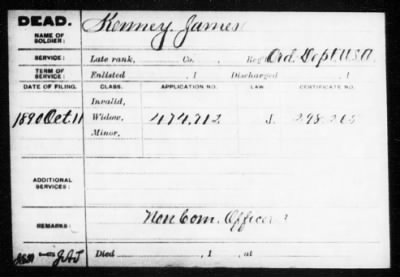 DEAD.
NAME OF SOLDIER: Kenney, James
SERVICE: Late rank, Co. Reg't Ord. Dept. U.S.A.
TERM OF SERVICE: Enlisted , 1 Discharged , 1
DATE OF FILING. CLASS. APPLICATION NO. LAW. CERTIFICATE NO.
Invalid,
1890 Oct 11 Widow, 474.712 298.265
Minor,
ADDITIONAL SERVICES:
REMARKS: Non Com. Officer
Died , 1 , at